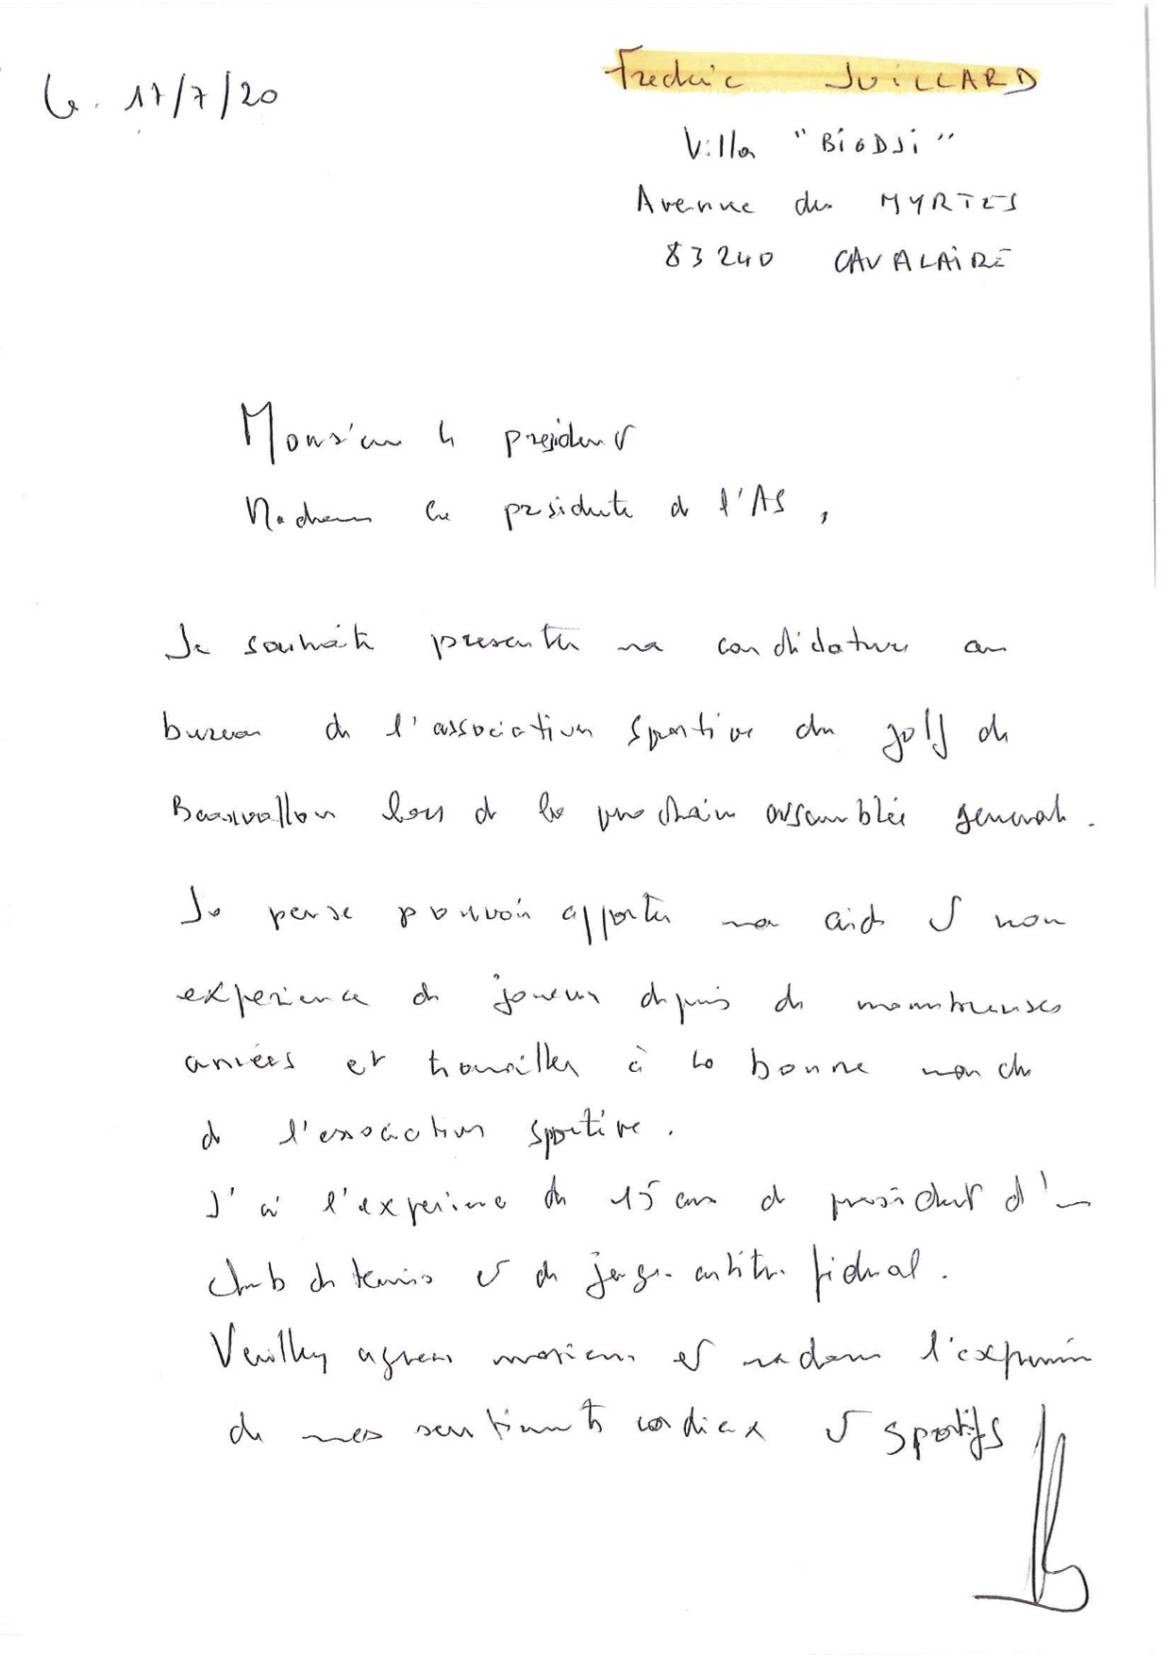 Le. 17/7/20
Frederic JUILLARD
Villa "BioDJi"
Avenue des MYRTES
83240 CAVALAIRE
Monsieur le president
Madame la presidente de l'AS,
Je souhaite presenter ma candidature au
bureau de l'association sportive du golf de
Beauvallon lors de la prochaine assemblée generale.
Je pense pouvoir apporter ma aide et mon
experience de joueur depuis de nombreuses
années et travailler à la bonne marche
de l'association sportive.
J'ai l'experience de 15 ans de president d'un
club de tennis et de juge-arbitre federal.
Veuillez agreer monsieur et madame l'expression
de mes sentiments cordiaux et sportifs